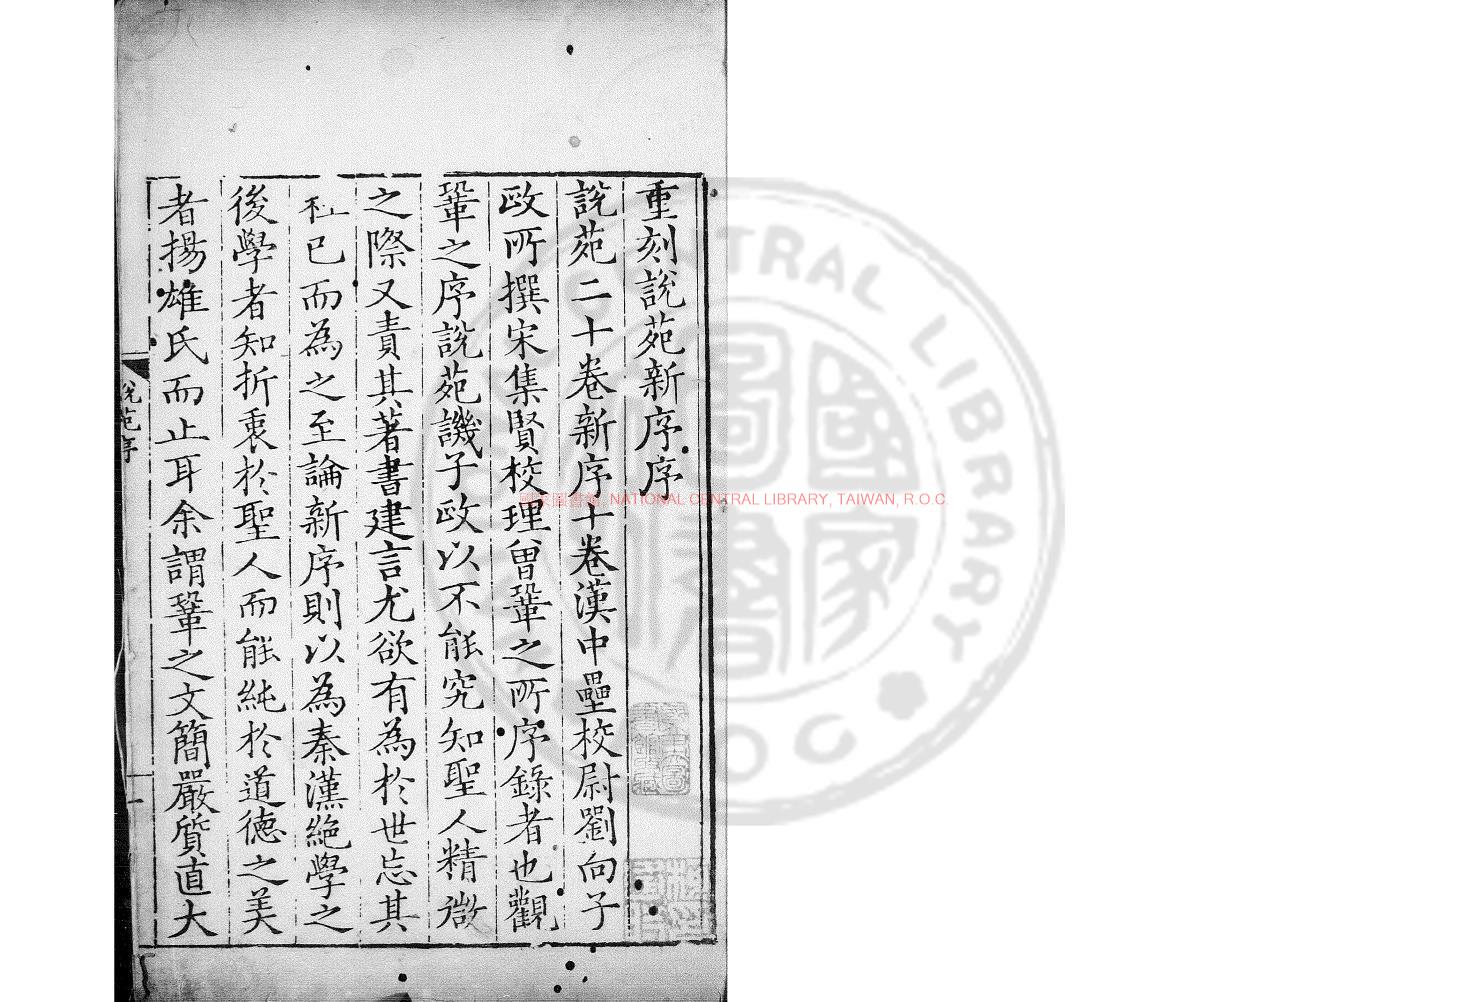 重刻說苑新序序
說苑二十卷新序十卷漢中壘校尉劉向子
政所撰宋集賢校理曾鞏之所序錄者也觀
鞏之序說苑譏子政以不能究知聖人精微
之際又責其著書建言尤欲有為於世忘其
枉己而為之至論新序則以為秦漢絕學之
後學者知折衷於聖人而能純於道德之美
者揚雄氏而止耳余謂鞏之文簡嚴質直大
說苑序
一
國家圖書館 NATIONAL CENTRAL LIBRARY, TAIWAN, R.O.C.
CENTRAL LIBRARY
國家圖書